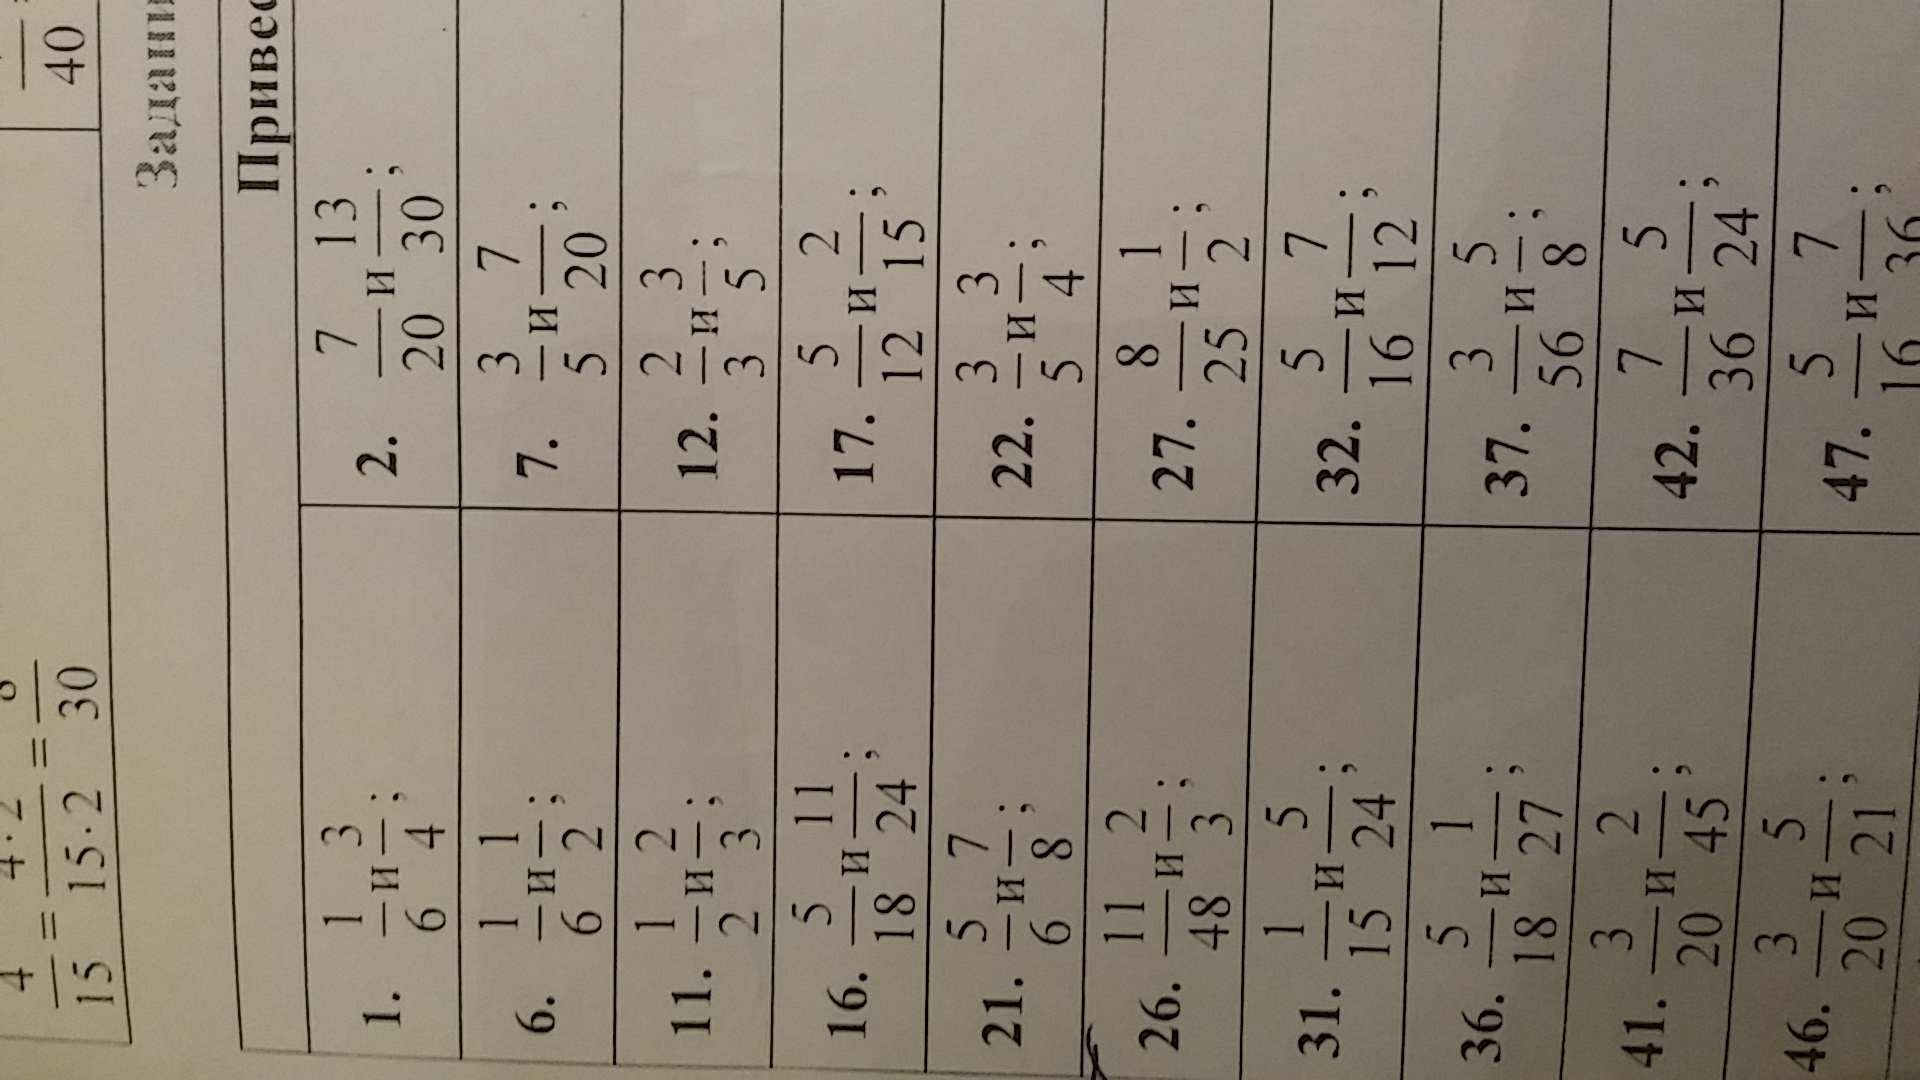 4/15 = 4·2/15·2 = 8/30
40
Задани
Привес
1. 1/6 и 3/4;
2. 7/20 и 13/30;
6. 1/6 и 1/2;
7. 3/5 и 7/20;
11. 1/2 и 2/3;
12. 2/3 и 3/5;
16. 5/18 и 11/24;
17. 5/12 и 2/15;
21. 5/6 и 7/8;
22. 3/5 и 3/4;
26. 11/48 и 2/3;
27. 8/25 и 1/2;
31. 1/15 и 5/24;
32. 5/16 и 7/12;
36. 5/18 и 1/27;
37. 3/56 и 5/8;
41. 3/20 и 2/45;
42. 7/36 и 5/24;
46. 3/20 и 5/21;
47. 5/16 и 7/36;